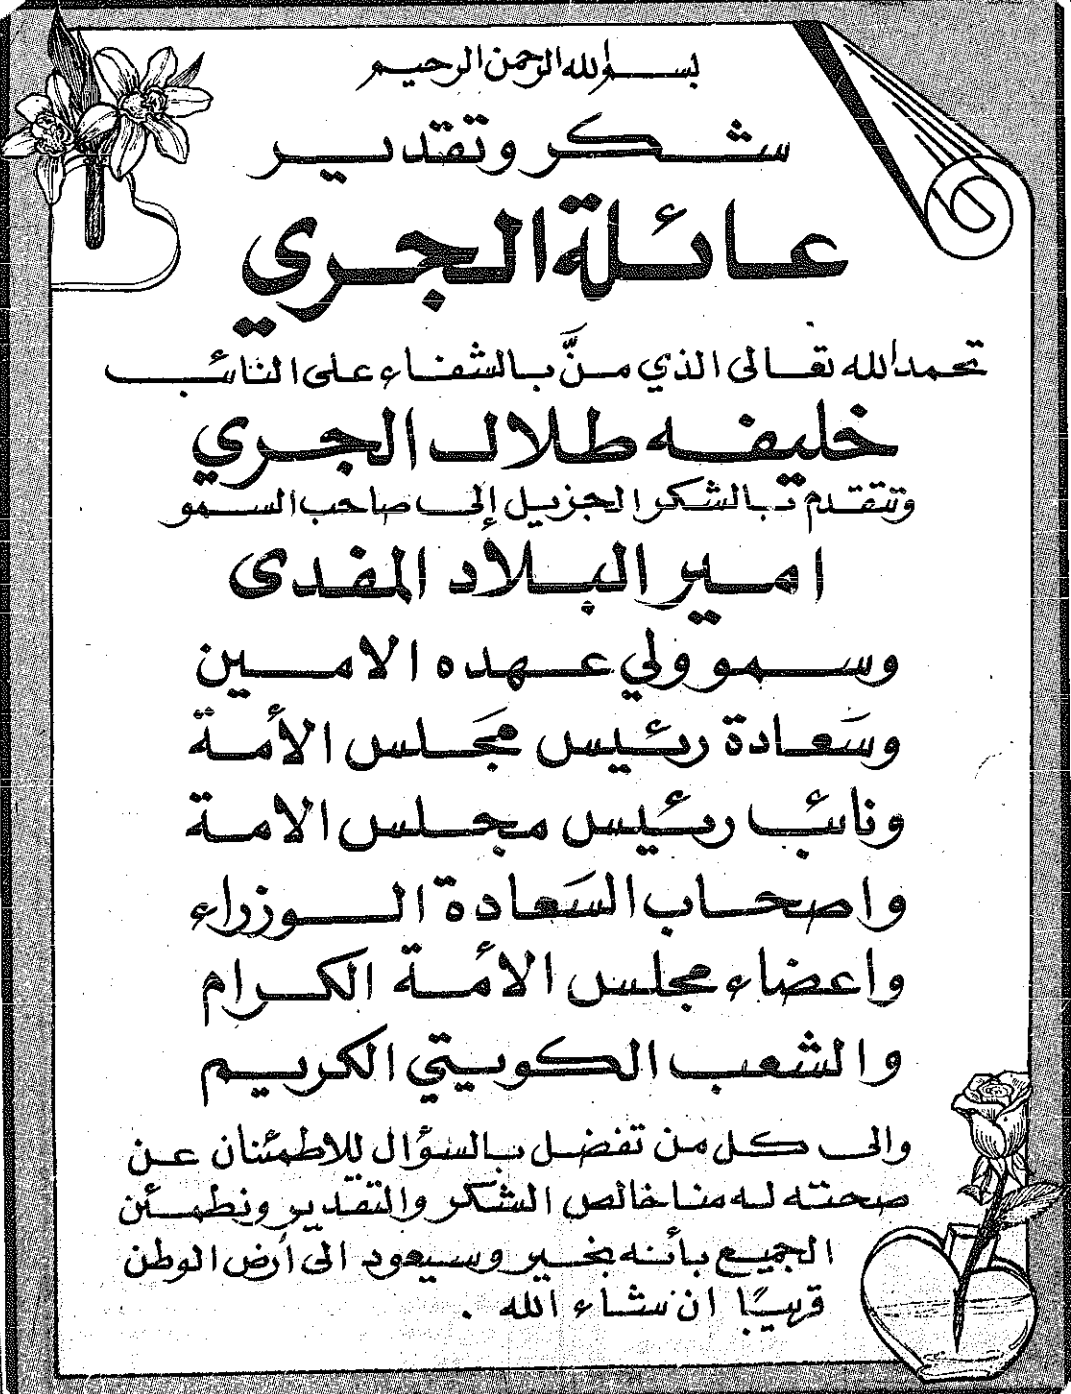 بسم الله الرحمن الرحيم
شكر وتقدير
عائلة الجري
تحمد الله تعالى الذي منَّ بالشفاء على النائب
خليفه طلال الجري
وتتقدم بالشكر الجزيل إلى صاحب السمو
امير البلاد المفدى
وسمو ولي عهده الامين
وسَعادة رئيس مجَلس الأمة
ونائب رئيس مجلس الامة
واصحاب السَعادة الوزراء
واعضاء مجلس الأمة الكرام
والشعب الكويتي الكريم
والى كل من تفضل بالسؤال للاطمئنان عن
صحته له منا خالص الشكر والتقدير ونطمئن
الجميع بأنه بخير وسيعود الى أرض الوطن
قريبًا ان شاء الله .